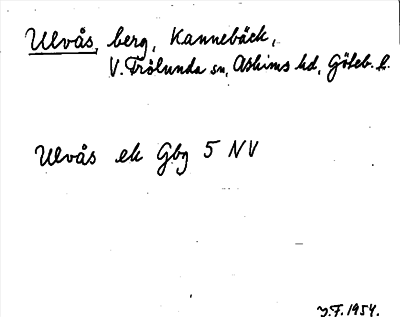 Ulvås, berg, Kannebäck,
V. Frölunda sn, Askims hd, Göteb. l.
Ulvås ek Gbg 5 NV
J.F. 1954.